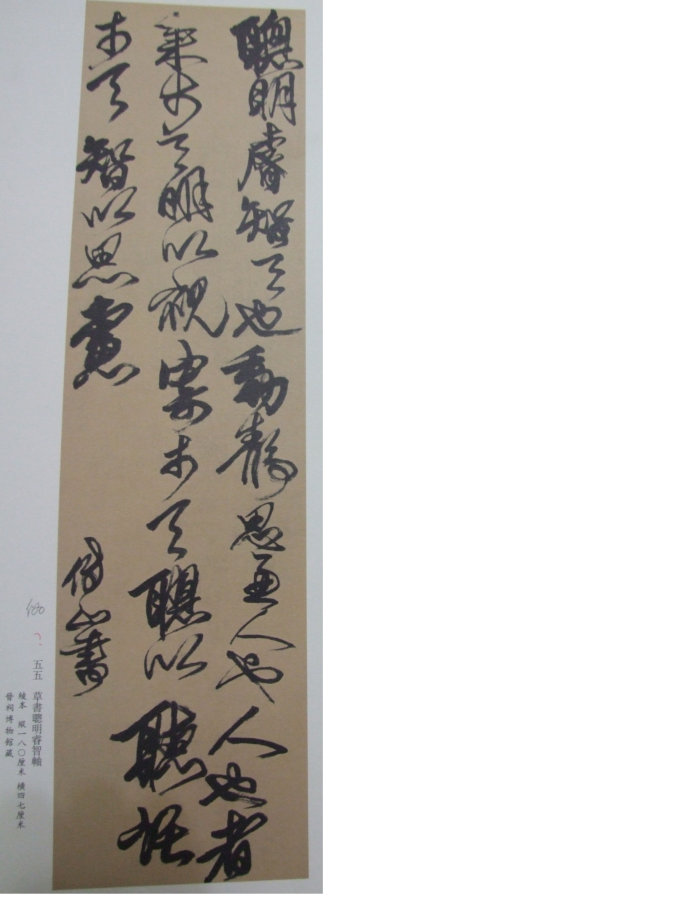 聰明睿智天也動靜思慮人也人也者
乘於天明以視寄於天聰以聽託
於天智以思慮
傅山書
五五 草書聰明睿智軸
綾本 縱一八〇厘米 橫四七厘米
晉祠博物館藏